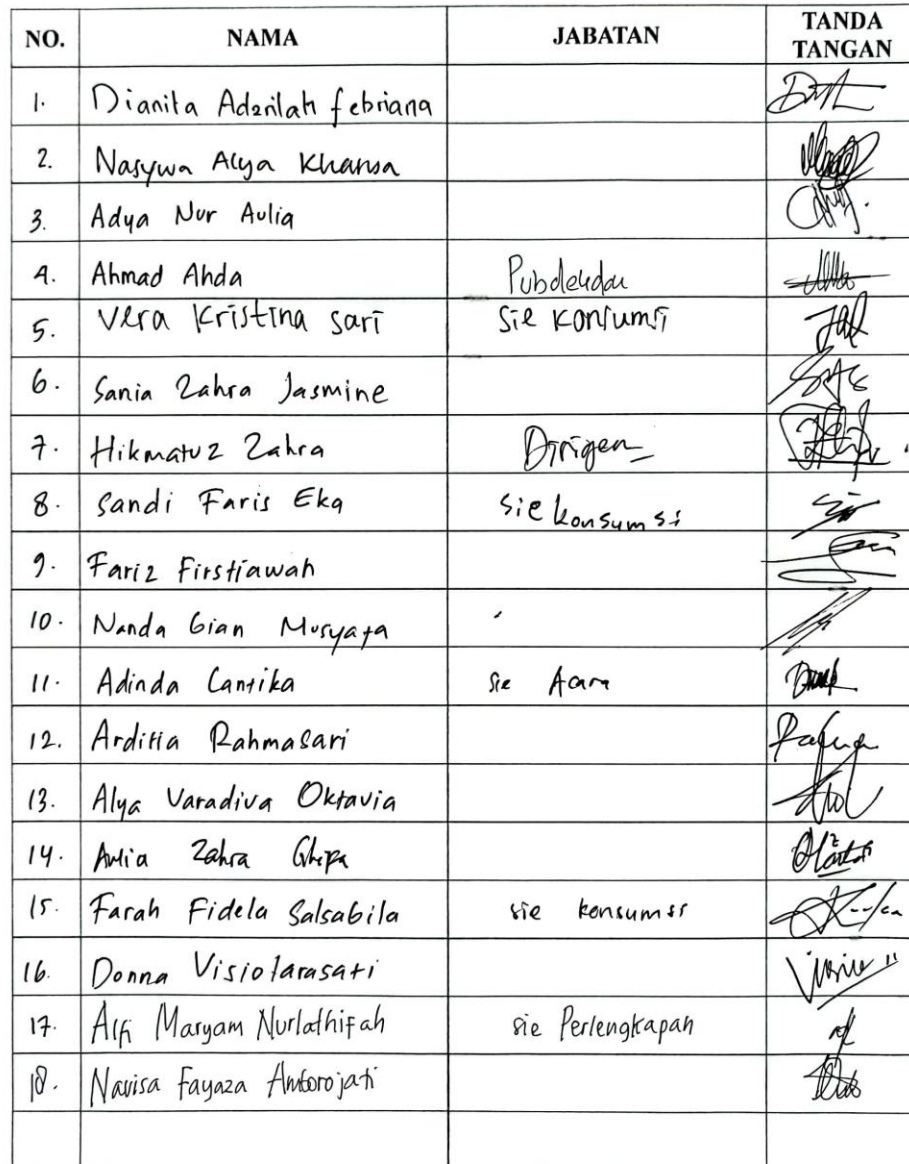 NO. NAMA JABATAN TANDA TANGAN
1. Dianita Adznilah febriana
2. Nasywa Alya Khansa
3. Adya Nur Aulia
4. Ahmad Ahda Pubdekdok
5. Vera Kristina sari sie konsumsi
6. Sania Zahra Jasmine
7. Hikmatuz Zahra Dirigen
8. Sandi Faris Eka sie konsumsi
9. Fariz Firstiawah
10. Nanda Gian Musyafa
11. Adinda Cantika sie Acara
12. Arditia Rahmasari
13. Alya Varadiva Oktavia
14. Aulia Zahra
15. Farah Fidela Salsabila sie konsumsi
16. Donna Visiolarasati
17. Alfi Maryam Nurlathifah sie Perlengkapan
18. Navisa Fayaza Antorojati